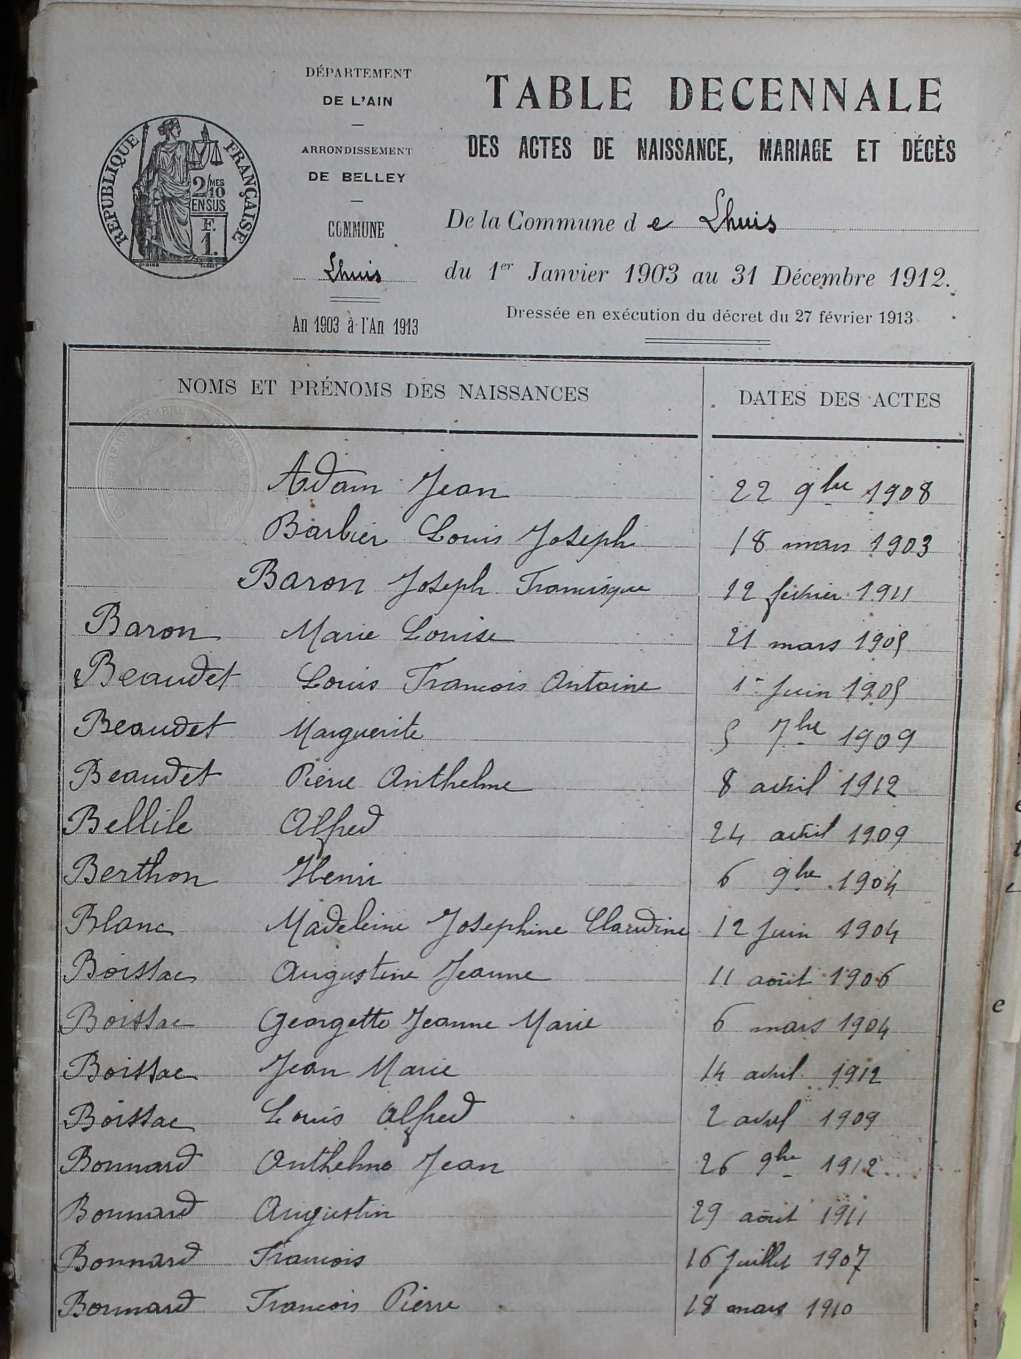 DÉPARTEMENT
DE L'AIN
ARRONDISSEMENT
DE BELLEY
COMMUNE
Lhuis
An 1903 à l'An 1913
RÉPUBLIQUE FRANÇAISE
2/10 MES
EN SUS
F.
1.
TABLE DECENNALE
DES ACTES DE NAISSANCE, MARIAGE ET DÉCÈS
De la Commune de Lhuis
du 1er Janvier 1903 au 31 Décembre 1912.
Dressée en exécution du décret du 27 février 1913
NOMS ET PRÉNOMS DES NAISSANCES DATES DES ACTES
Adam Jean 22 9bre 1908
Barbier Louis Joseph 18 mars 1903
Baron Joseph Francisque 12 février 1911
Baron Marie Louise 21 mars 1905
Beaudet Louis François Antoine 1er Juin 1905
Beaudet Marguerite 5 7bre 1909
Beaudet Pierre Anthelme 8 avril 1912
Bellile Alfred 24 avril 1909
Berthon Henri 6 9bre 1904
Blanc Madeleine Josephine Claudine 12 Juin 1904
Boissac Augustine Jeanne 11 août 1906
Boissac Georgette Jeanne Marie 6 mars 1904
Boissac Jean Marie 14 avril 1912
Boissac Louis Alfred 2 avril 1909
Bonnard Anthelme Jean 26 9bre 1912
Bonnard Augustin 29 août 1911
Bonnard François 16 Juillet 1907
Bonnard François Pierre 18 mars 1910